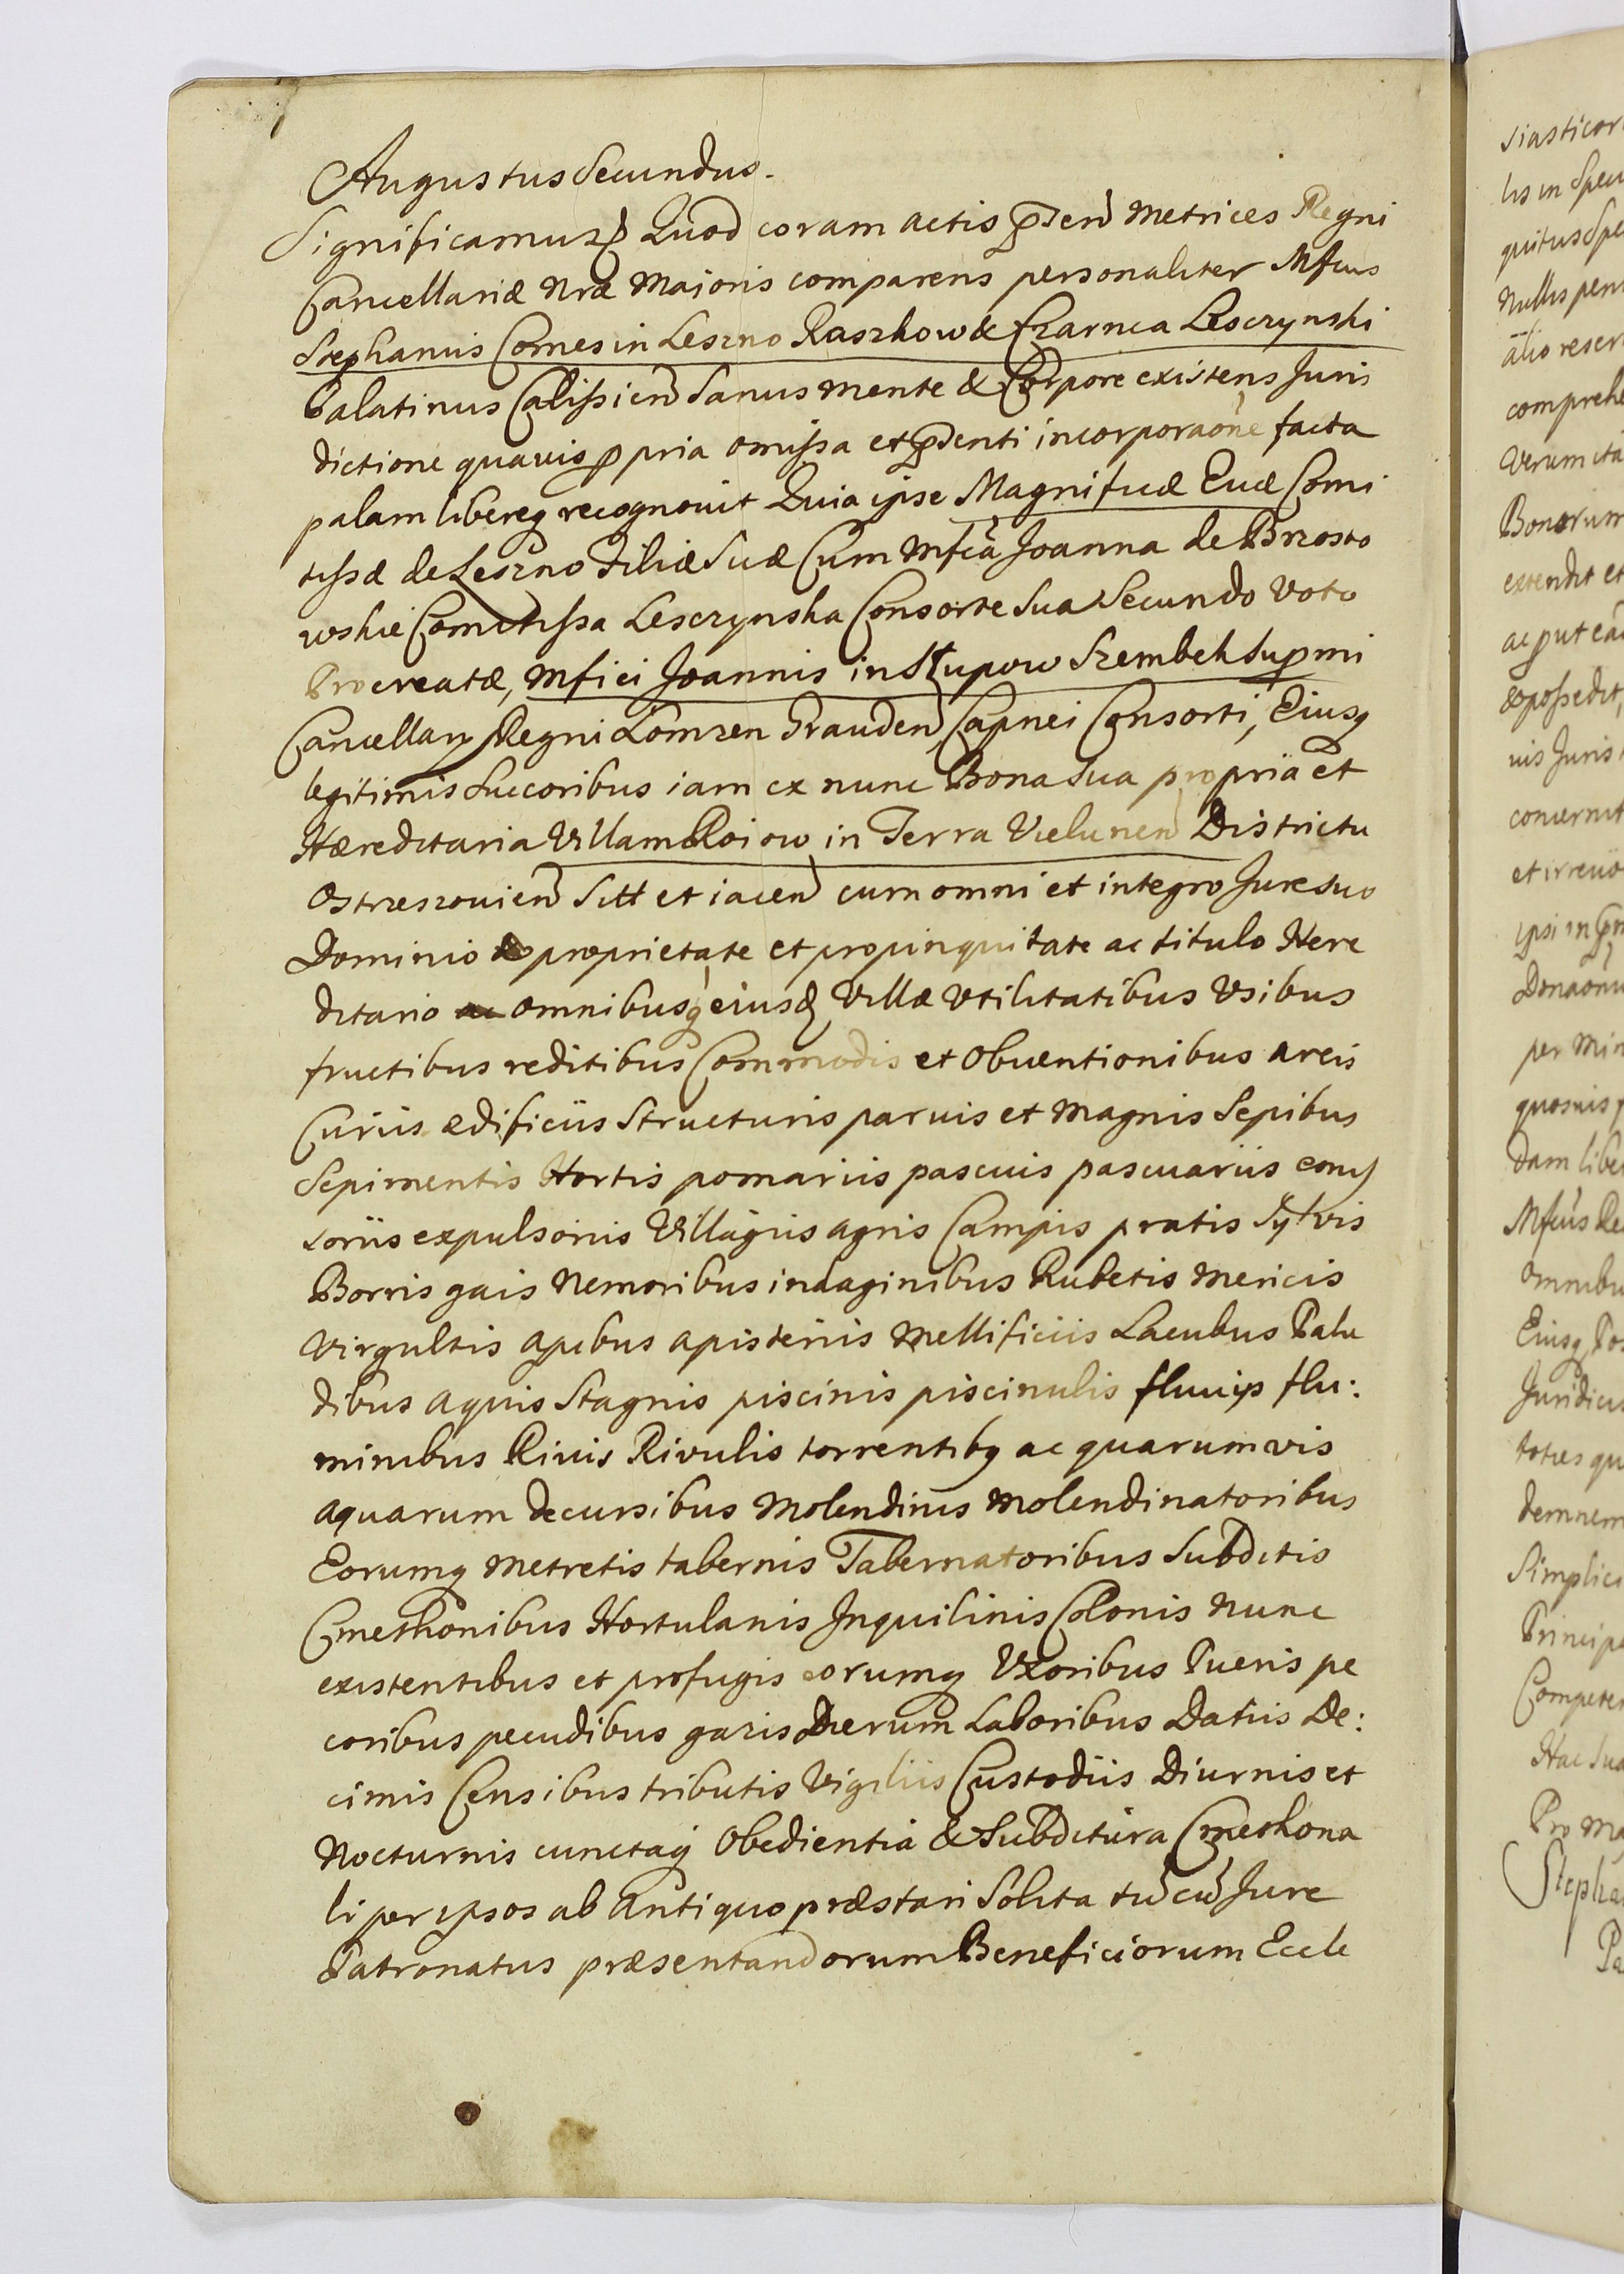 Augustus Secundus.
Significamus Quod coram actis p̄sen Metrices Regni
Cancellariæ Nræ Maioris comparens personaliter Mfcus
Stephanus Comes in Leszno Raszkow & Czarnca Lesczynski
Palatinus Calissien Sanus mente & Corpore existens Juris
dictione quavis ppria omissa et p̄senti incorporaōne facta
palam libereq recognovit Quia ipse Magnificæ Evæ Comi
tissæ de Leszno Filiæ Suæ Cum Mfcā Joanna de Brzosto
wskie Comitissa Lesczynska Consorte Sua Secundo Voto
Procreatæ, Mfici Joannis in Słupow Szembek Supmi
Cancellarÿ Regni Łomzen Grauden Capnei Consorti, Eiusq
legitimis Succoribus iam ex nunc Bona Sua propria et
Hæreditaria Villam Roiow in Terra Vielunen Districtu
Ostrzeszovien Sitt et iacen cum omni et integro Jure Suo
Dominio proprietate et propinquitate ac titulo Here
ditario ac omnibusq eiusd Villæ Utilitatibus Usibus
fructibus reditibus Commodis et Obventionibus areis
Curiis ædificiis Structuris parvis et magnis Sepibus
Sepimentis Hortis pomariis pascuis pascuariis emis
soriis expulsoriis Villagiis agris Campis pratis Sylvis
Borris gais Nemoribus indaginibus Rubetis Mericis
Virgultis apibus apisteriis Mellificiis Lacubus Palu
dibus aquis Stagnis piscinis piscinulis fluviis flu:
minibus Rivis Rivulis torrentibq ac quarumvis
aquarum decursibus Molendinis Molendinatoribus
Eorumq Metretis tabernis Tabernatoribus Subditis
Cmethonibus Hortulanis Inquilinis Colonis Nunc
existentibus et profugis eorumq Uxoribus Pueris pe
coribus pecudibus gazis Dierum Laboribus Datiis De:
cimis Censibus tributis Vigiliis Custodiis Diurnis et
Nocturnis cunctaq Obedientia & Subditura Cmethona
li per ipsos ab Antiquo præstari Solita tū cū Jure
Patronatus præsentandorum Beneficiorum Eccle